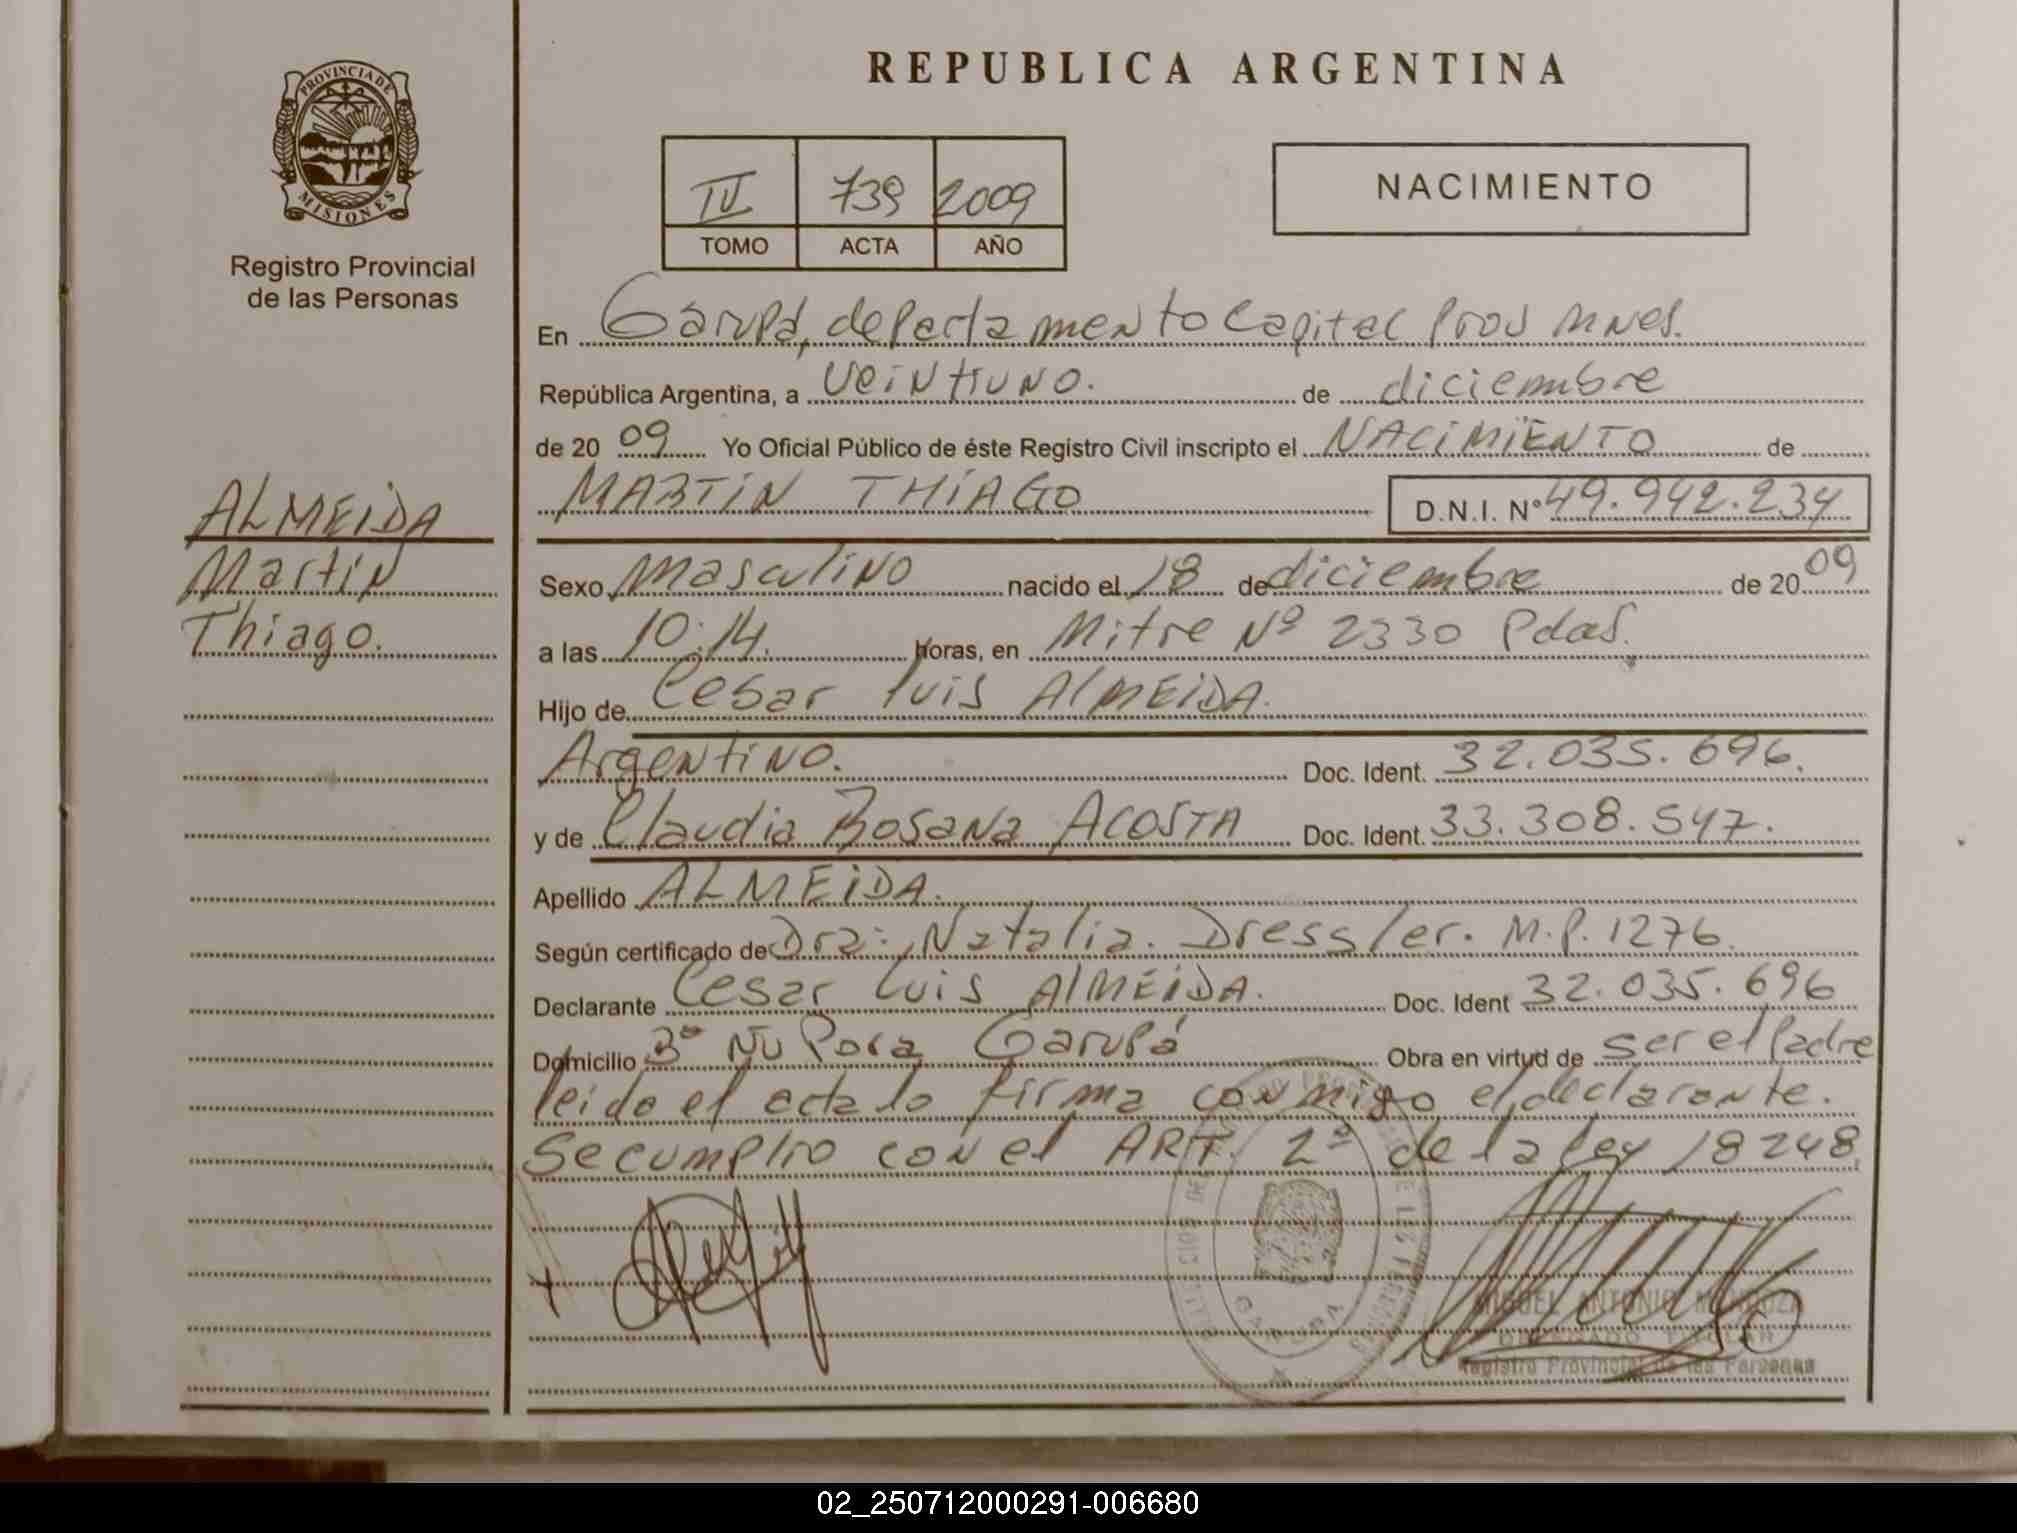 PROVINCIA DE
MISIONES
Registro Provincial
de las Personas
REPUBLICA ARGENTINA
IV 739 2009
TOMO ACTA AÑO
NACIMIENTO
En Garupá, departamento Capital Prov Mnes.
República Argentina, a veintiuno. de diciembre
de 2009 Yo Oficial Público de éste Registro Civil inscripto el NACIMIENTO de
MARTIN THIAGO D.N.I. Nº 49.942.234
ALMEIDA
Martin
Thiago.
Sexo Masculino nacido el 18 de diciembre de 2009
a las 10:14. horas, en Mitre Nº 2330 Pdas.
Hijo de Cesar Luis AlMEIDA.
Argentino. Doc. Ident. 32.035.696.
y de Claudia Rosana ACOSTA Doc. Ident. 33.308.547.
Apellido ALMEIDA.
Según certificado de Dra. Natalia. Dressler. M.P. 1276.
Declarante Cesar Luis AlMEIDA. Doc. Ident 32.035.696
Domicilio Bº Ñu Pora Garupá Obra en virtud de ser el Padre
leida el acta la firma conmigo el declarante.
Se cumplio con el ART. 2º de la ley 18248
GARUPA
MIGUEL ANTONIO MENDOZA
DELEGADO TITULAR
Registro Provincial de las Personas
02_250712000291-006680